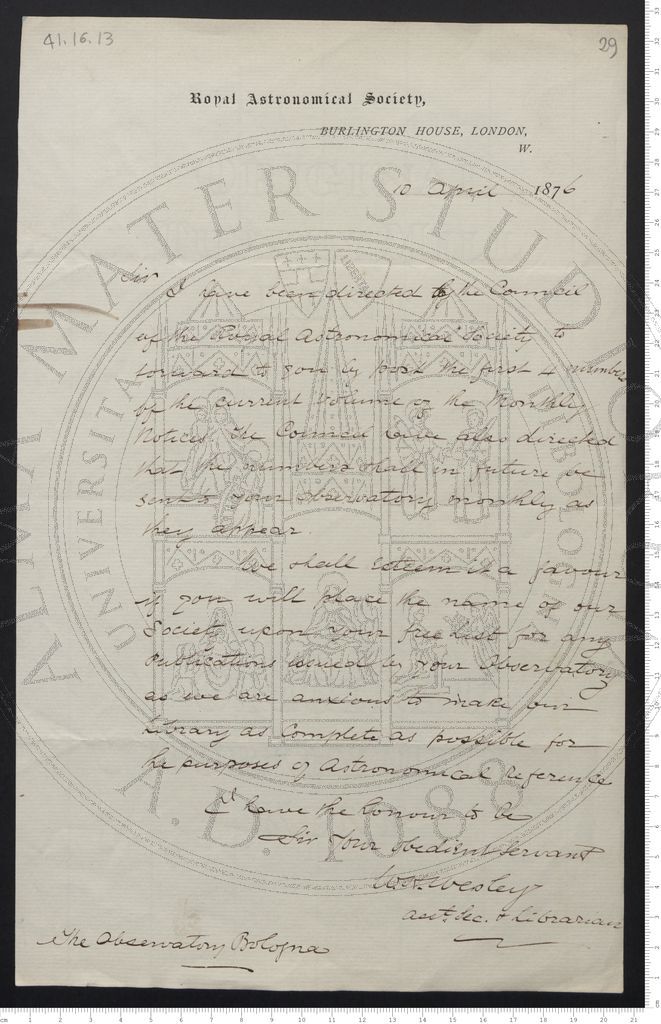 41.16.13
29
Royal Astronomical Society,
BURLINGTON HOUSE, LONDON,
W.
10 April 1876
Sir
I have been directed by the Council
of the Royal Astronomical Society to
forward to you by post the first 4 numbers
of the current volume of the Monthly
Notices. The Council have also directed
that the numbers shall in future be
sent to your observatory monthly as
they appear.
We shall esteem it a favour
if you will place the name of our
Society upon your free list for any
Publications issued by your Observatory
as we are anxious to make our
Library as Complete as possible for
the purposes of Astronomical Reference
I have the honour to be
Sir Your obedient servant
W.H. Wesley
Asst. Sec. & Librarian
The Observatory Bologna
ALMA MATER STUDIORUM
UNIVERSITÀ DI BOLOGNA
A.D. 1088